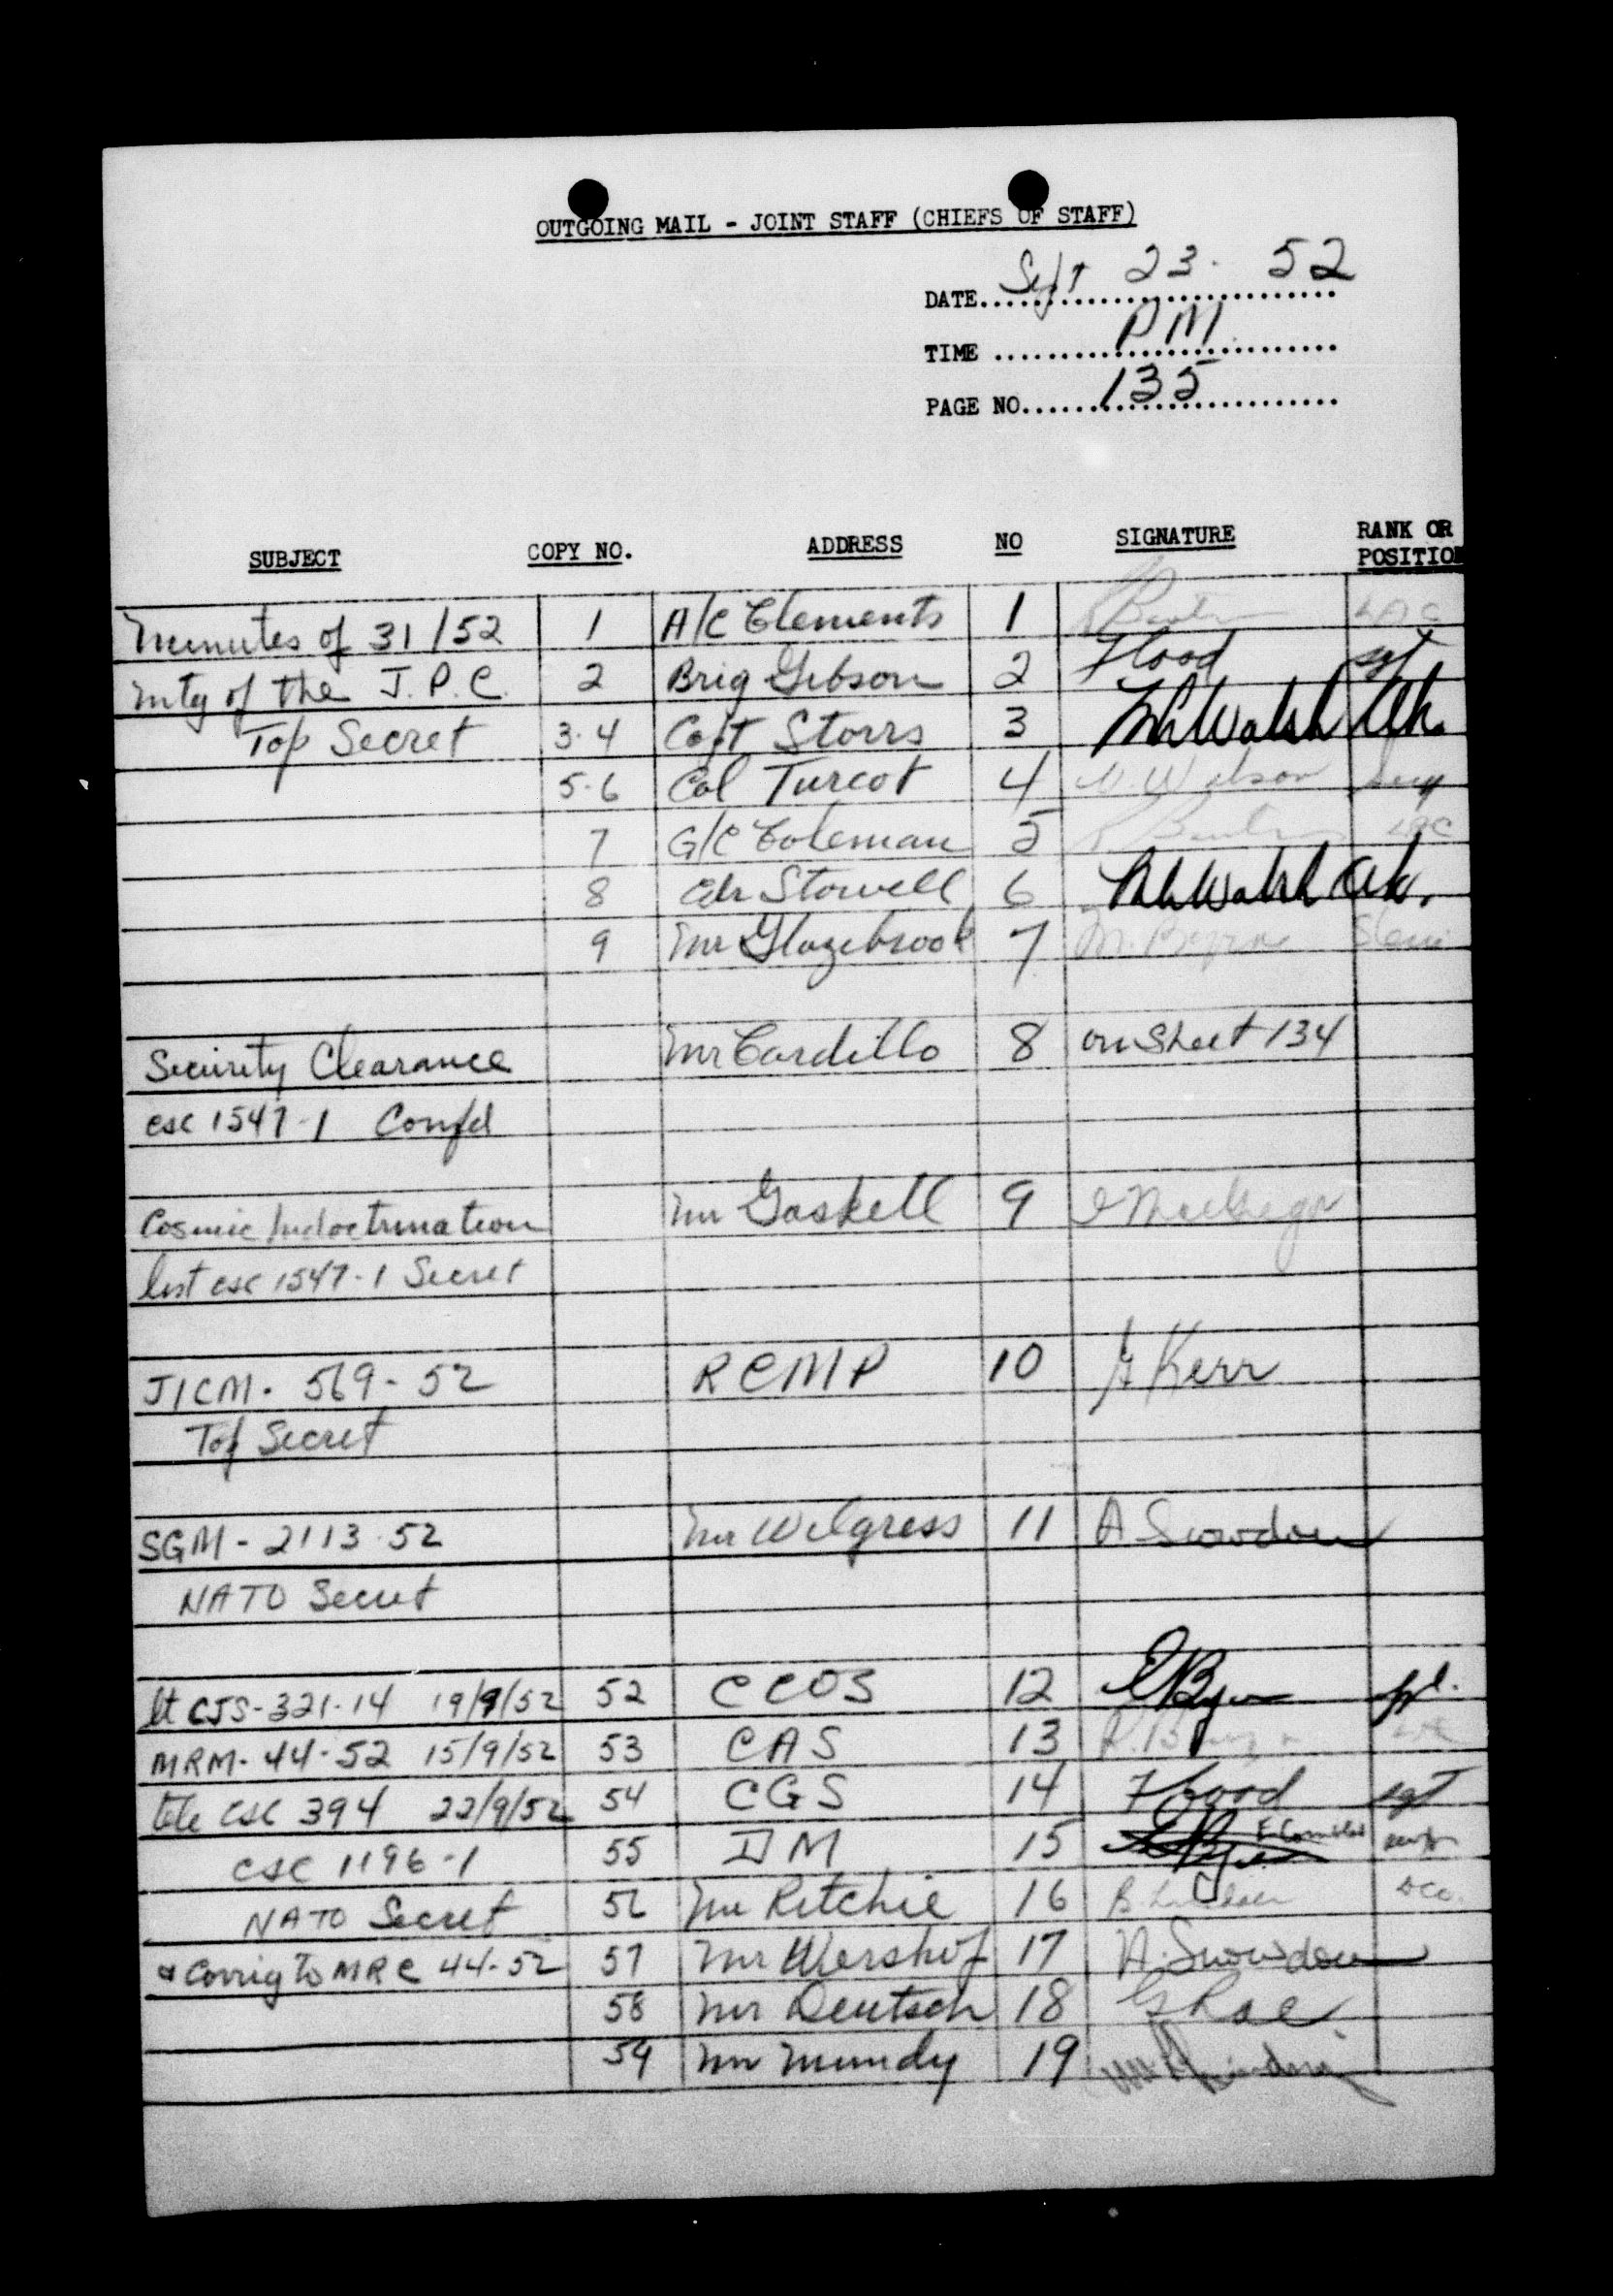 OUTGOING MAIL - JOINT STAFF (CHIEFS OF STAFF)
DATE Sept 23. 52
TIME PM
PAGE NO. 135
SUBJECT COPY NO. ADDRESS NO SIGNATURE RANK OR POSITION
Minutes of 31/52 1 A/C Clements 1 LAC
mtg of the J.P.C. 2 Brig Gibson 2 Flood sgt
Top Secret 3-4 Capt Storrs 3 Walsh
5-6 Col Turcot 4 Wilson
7 G/C Coleman 5 LAC
8 Cdr Stowell 6 Walsh
9 Mr Glazebrook 7 M. Byrne
Security Clearance Mr Cardillo 8 on Sheet 134
csc 1547-1 Confd
Cosmic Indoctrination Mr Gaskell 9
list csc 1547-1 Secret
JICM. 569-52 RCMP 10 Kerr
Top Secret
SGM-2113-52 Mr Wilgress 11 A Snowdon
NATO Secret
lt CJS-321-14 19/9/52 52 CCOS 12
MRM-44-52 15/9/52 53 CAS 13
tele csc 394 22/9/52 54 CGS 14 Flood sgt
csc 1196-1 55 DM 15
NATO Secret 56 Mr Ritchie 16 B.
& Corrig to MRC 44-52 57 Mr Wershof 17 A. Snowdon
58 Mr Deutsch 18 G Rae
59 Mr Mundy 19